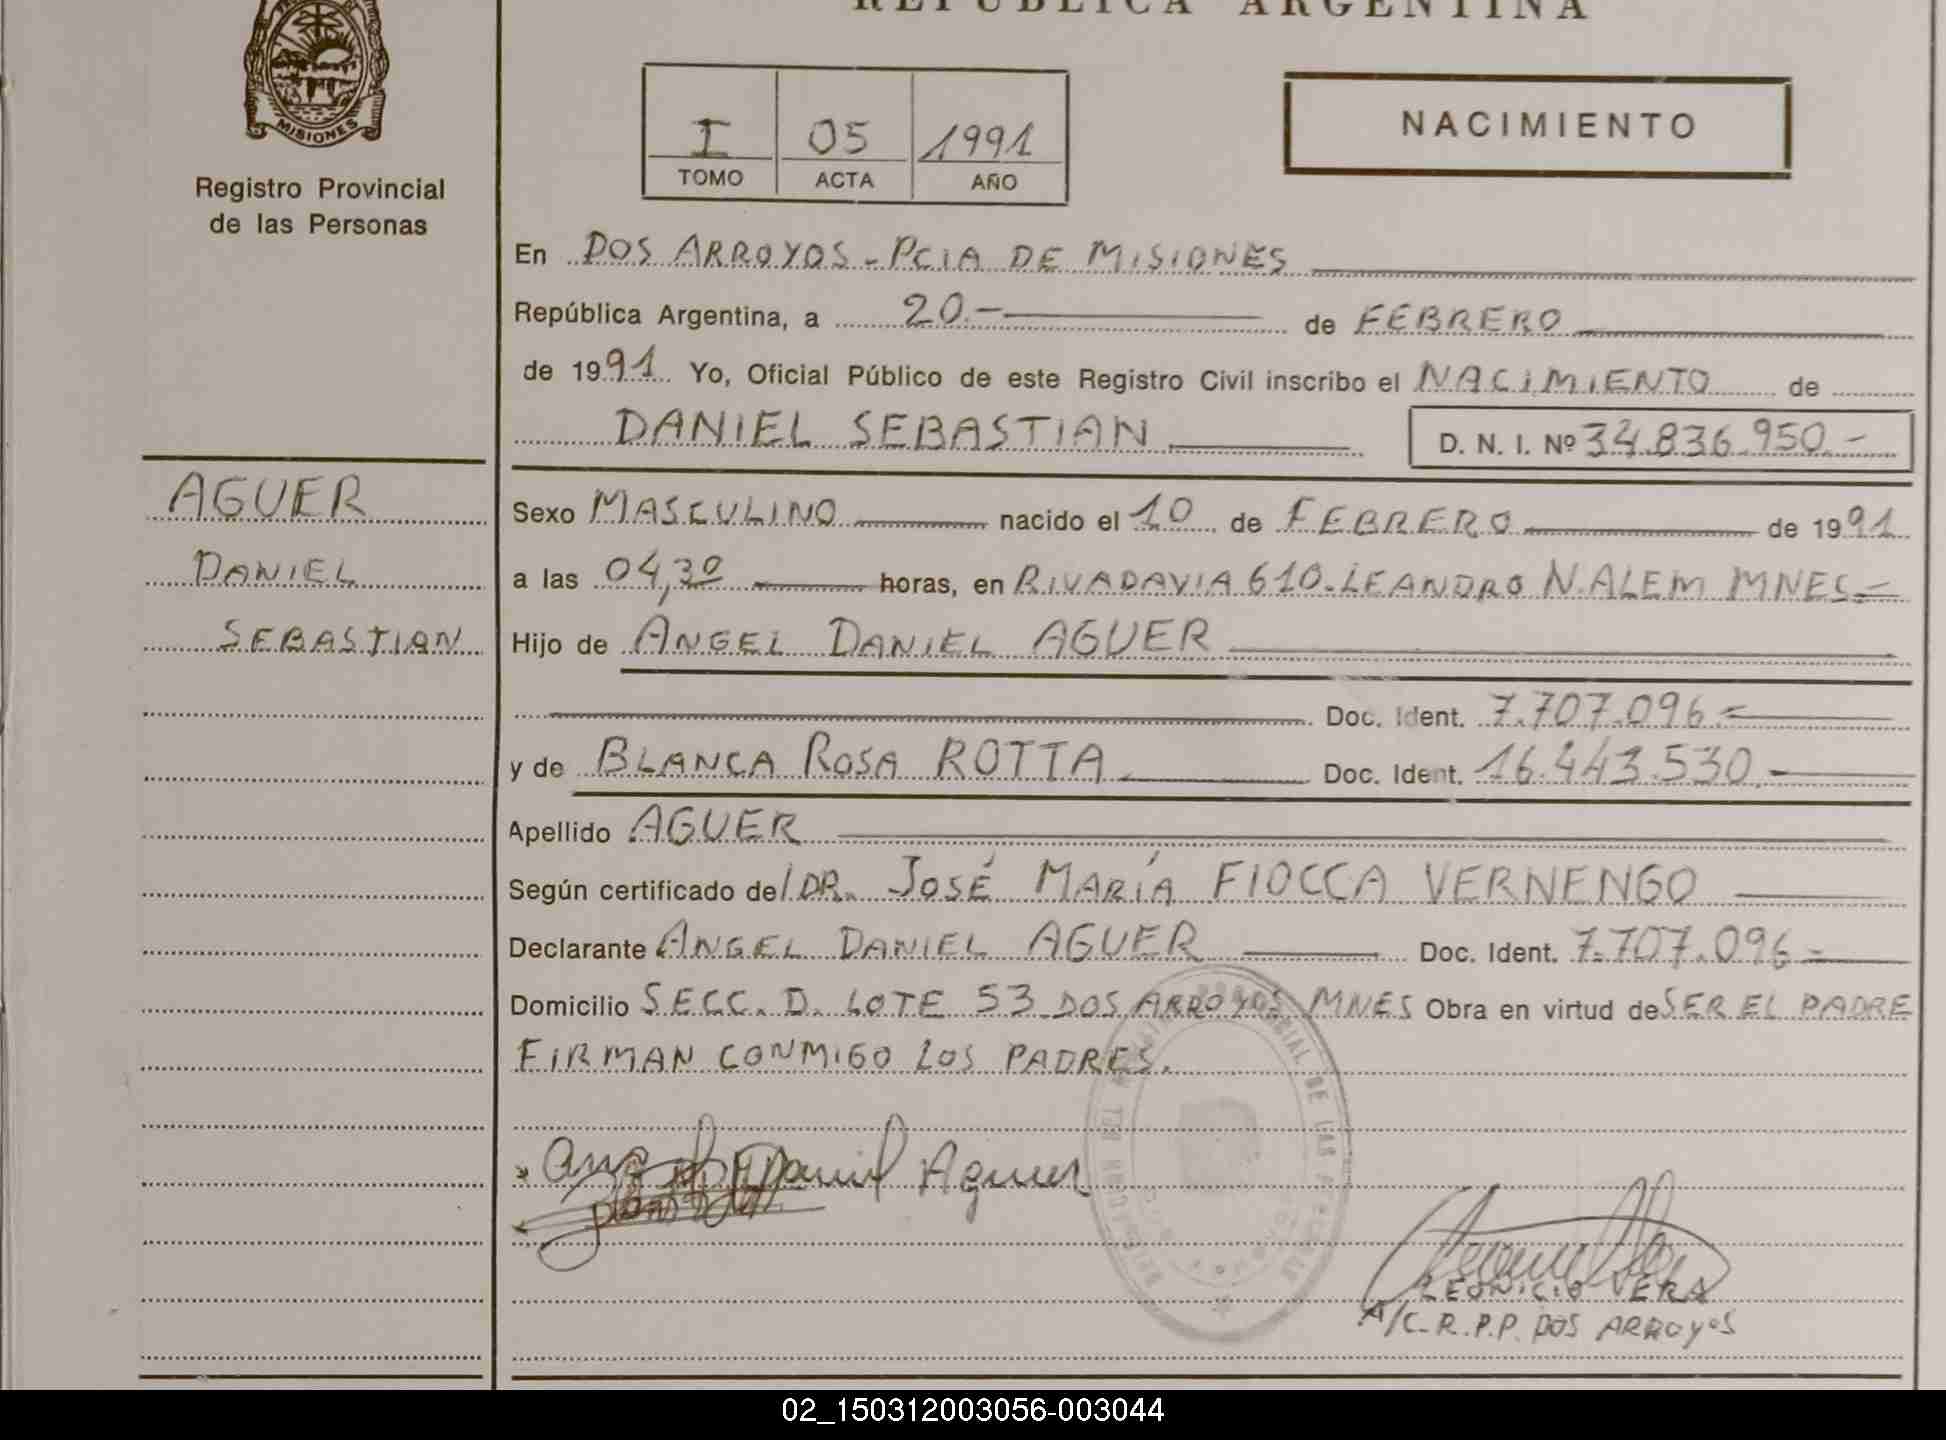 REPUBLICA ARGENTINA
MISIONES
Registro Provincial
de las Personas
I 05 1991
TOMO ACTA AÑO
NACIMIENTO
En DOS ARROYOS - PCIA DE MISIONES
República Argentina, a 20.- de FEBRERO
de 1991 Yo, Oficial Público de este Registro Civil inscribo el NACIMIENTO de
DANIEL SEBASTIAN D. N. I. Nº 34.836.950.-
AGUER
DANIEL
SEBASTIAN
Sexo MASCULINO nacido el 10 de FEBRERO de 1991
a las 04,30 horas, en RIVADAVIA 610-LEANDRO N.ALEM MNES-
Hijo de ANGEL DANIEL AGUER
Doc. Ident. 7.707.096-
y de BLANCA ROSA ROTTA Doc. Ident. 16.443.530.-
Apellido AGUER
Según certificado del DR. JOSÉ MARÍA FIOCCA VERNENGO
Declarante ANGEL DANIEL AGUER Doc. Ident. 7.707.096-
Domicilio SECC. D. LOTE 53 DOS ARROYOS MNES Obra en virtud de SER EL PADRE
FIRMAN CONMIGO LOS PADRES.
Daniel Aguer
LEONICIO VERA
A/C-R.P.P. DOS ARROYOS
02_150312003056-003044